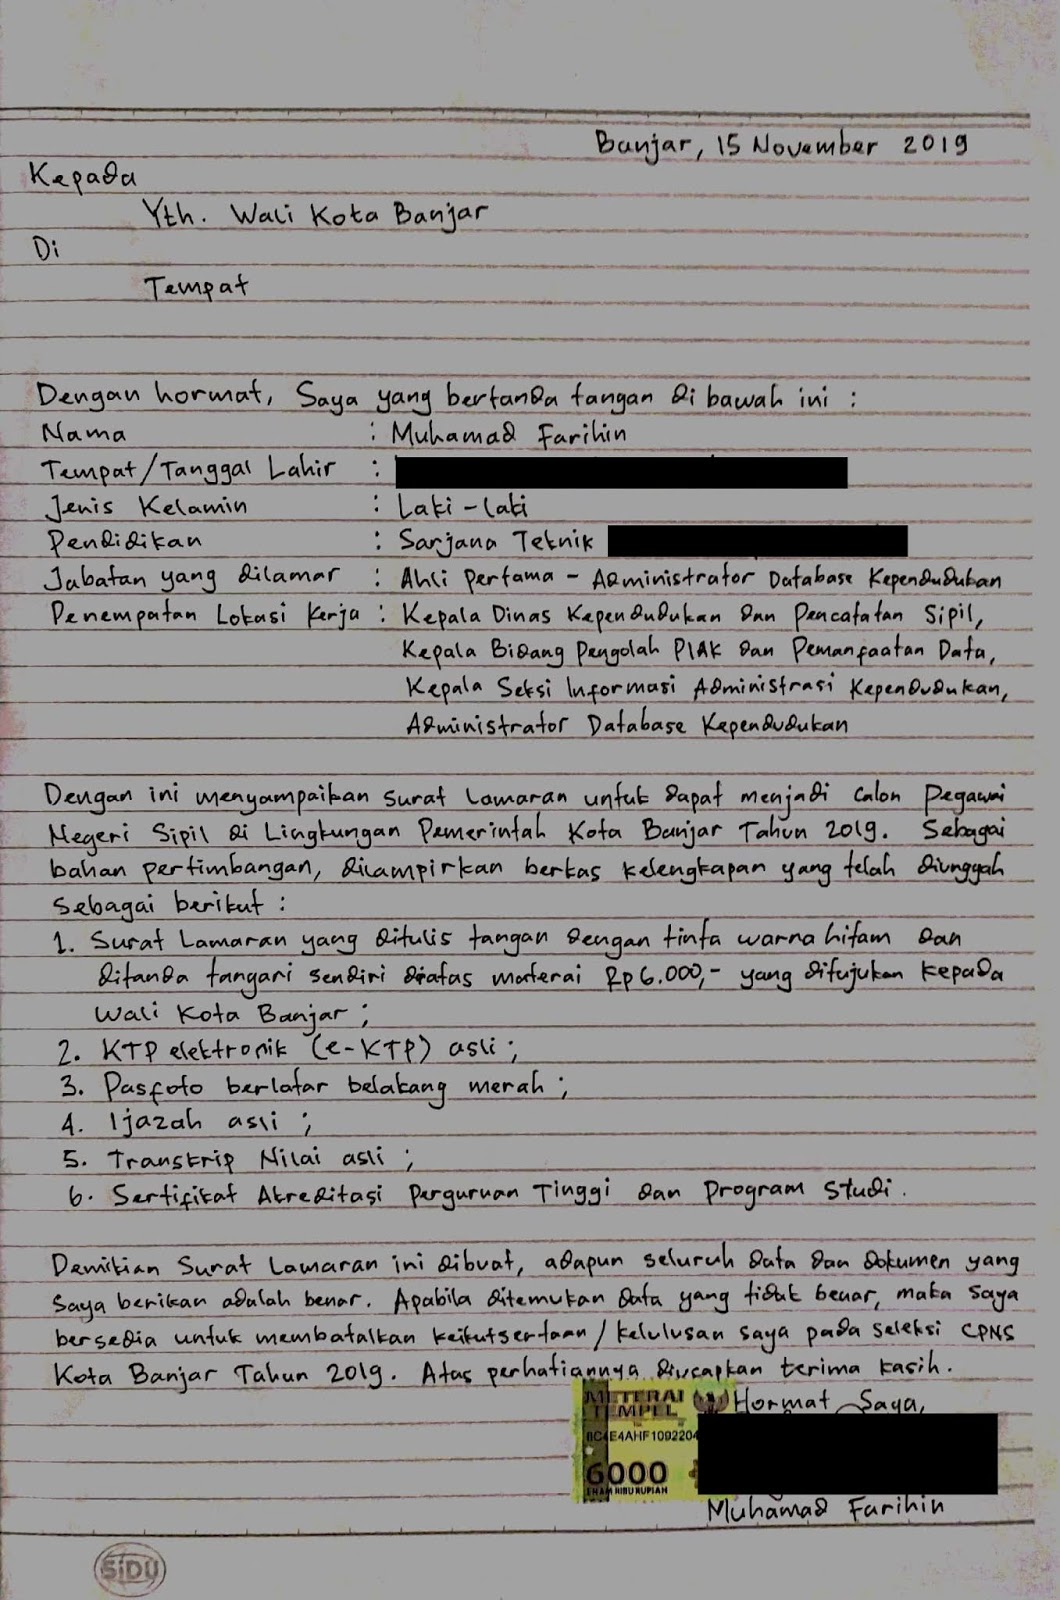 Banjar, 15 November 2019
Kepada
Yth. Wali Kota Banjar
Di
Tempat
Dengan hormat, Saya yang bertanda tangan di bawah ini :
Nama : Muhamad Farihin
Tempat/Tanggal Lahir :
Jenis Kelamin : Laki-laki
Pendidikan : Sarjana Teknik
Jabatan yang dilamar : Ahli Pertama - Administrator Database Kependudukan
Penempatan Lokasi Kerja : Kepala Dinas Kependudukan dan Pencatatan Sipil,
Kepala Bidang Pengolah PIAK dan Pemanfaatan Data,
Kepala Seksi Informasi Administrasi Kependudukan,
Administrator Database Kependudukan
Dengan ini menyampaikan surat lamaran untuk dapat menjadi Calon Pegawai
Negeri Sipil di Lingkungan Pemerintah Kota Banjar Tahun 2019. Sebagai
bahan pertimbangan, dilampirkan berkas kelengkapan yang telah diunggah
sebagai berikut :
1. Surat Lamaran yang ditulis tangan dengan tinta warna hitam dan
ditanda tangari sendiri diatas materai Rp6.000,- yang ditujukan kepada
Wali Kota Banjar ;
2. KTP elektronik (e-KTP) asli ;
3. Pasfoto berlatar belakang merah ;
4. Ijazah asli ;
5. Transkrip Nilai asli ;
6. Sertifikat Akreditasi Perguruan Tinggi dan Program Studi.
Demikian Surat Lamaran ini dibuat, adapun seluruh data dan dokumen yang
saya berikan adalah benar. Apabila ditemukan data yang tidak benar, maka saya
bersedia untuk membatalkan keikutsertaan/kelulusan saya pada seleksi CPNS
Kota Banjar Tahun 2019. Atas perhatiannya diucapkan terima kasih.
METERAI TEMPEL
Hormat Saya,
6000
ENAM RIBU RUPIAH
Muhamad Farihin
SiDU